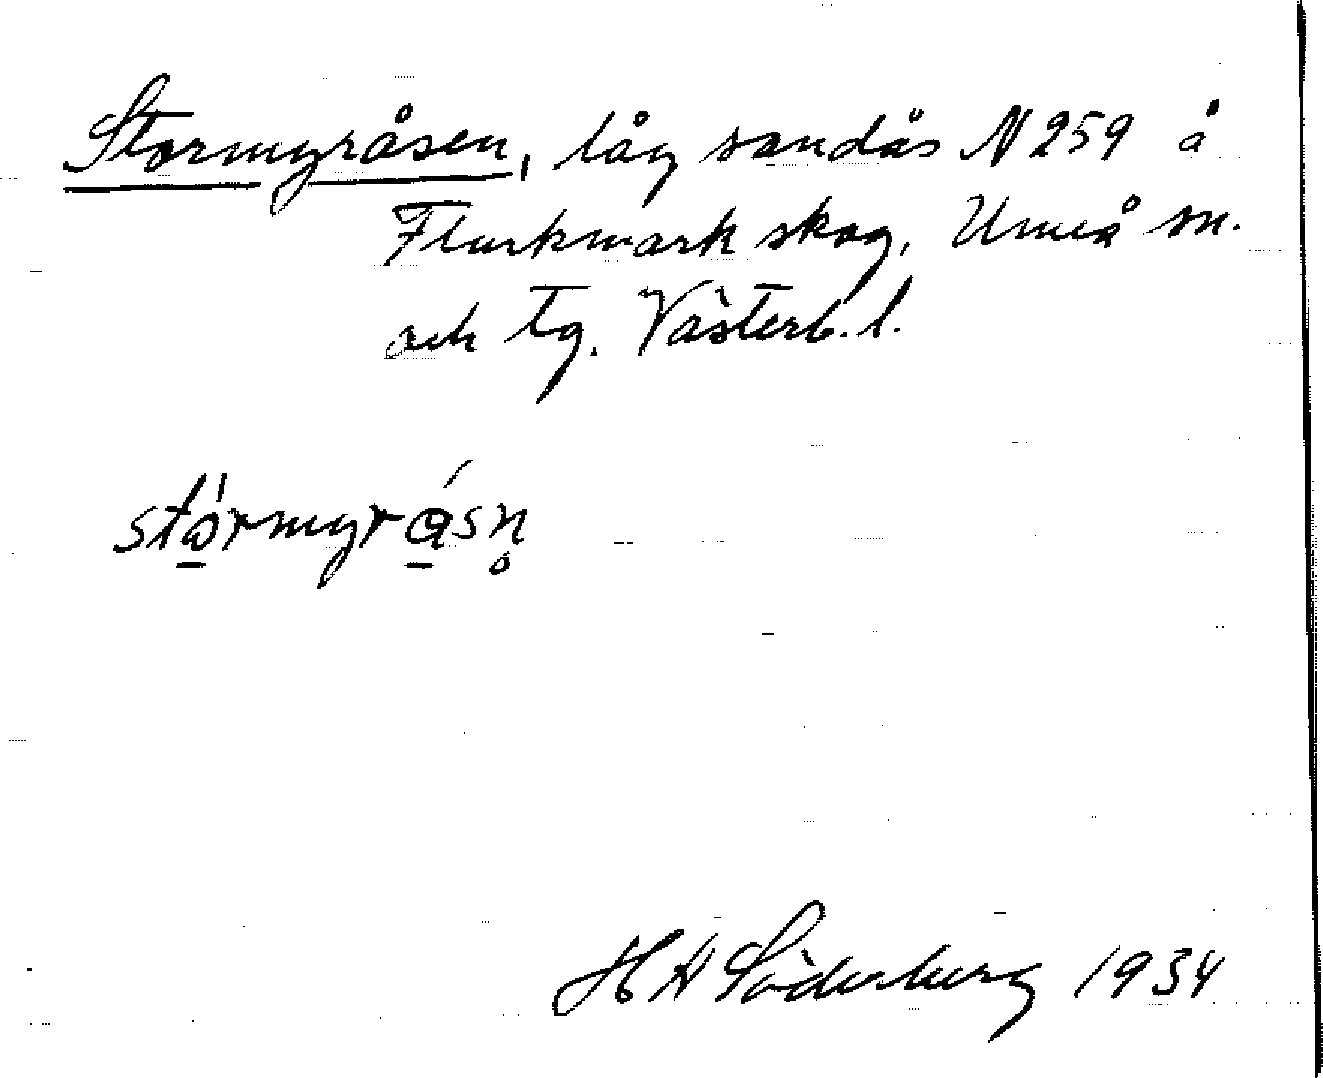 Stormyråsen, låg sandås N 259 å
Flurkmark skog, Umeå sn.
och tg. Västerb. l.
stó̱rmyrá̱sn̥
H A Söderberg 1934